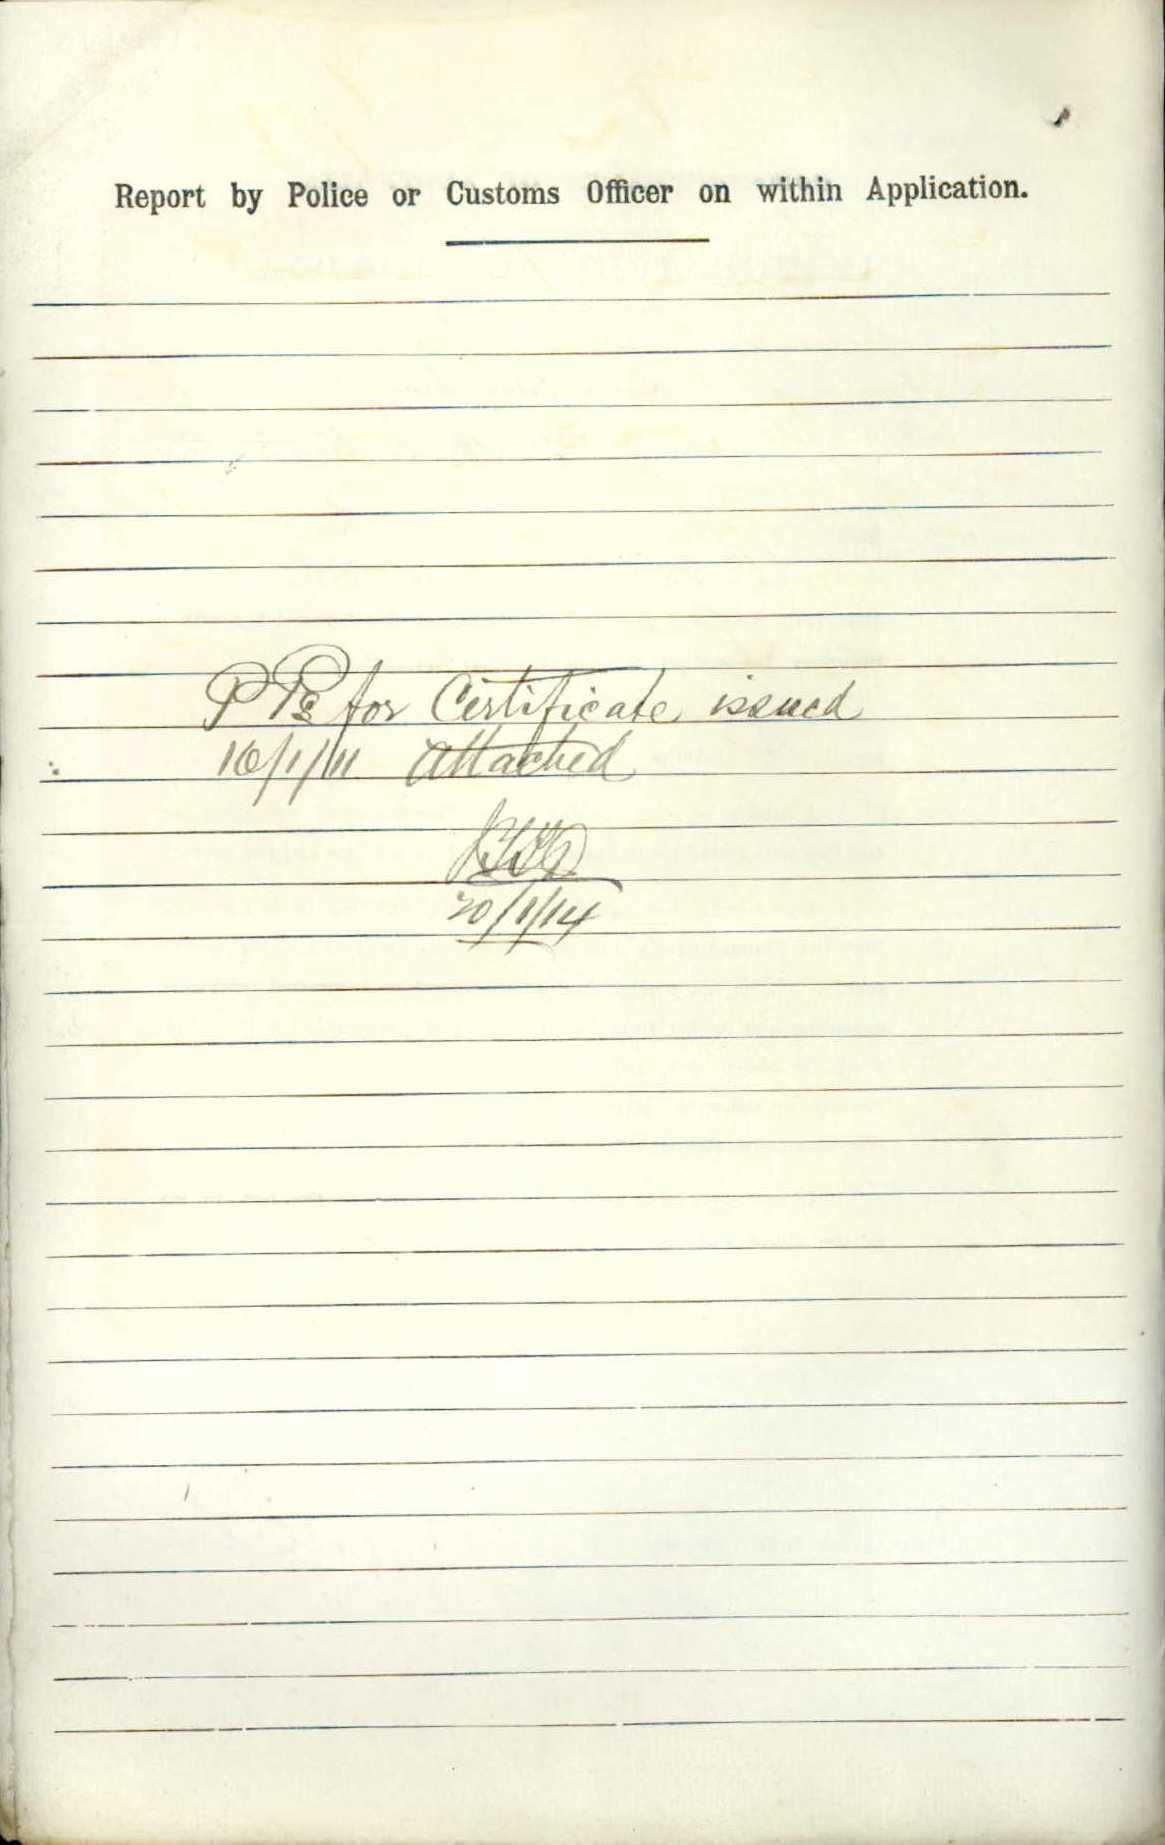 Report by Police or Customs Officer on within Application.
P Ps for Certificate issued
16/1/11 Attached
20/1/14